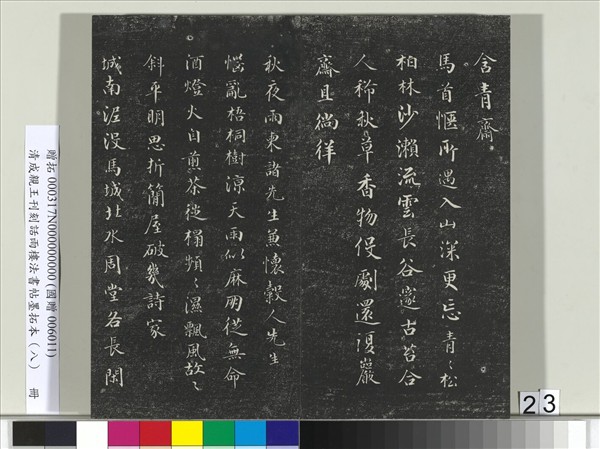 含青齋
馬首愜所遇入山深更忘青〻松
柏林沙瀨流雲長谷邃古苔合
人稀秋草香物侵劇還復巖
齋且徜徉
秋夜雨柬諸先生兼懷穀人先生
慌亂梧桐樹涼天雨似麻兩從無命
酒燈火自煎茶徙榻頻〻濕飄風故〻
斜平明思折簡屋破幾詩家
城南泥沒馬城北水周堂各長閑
贈拓 000317N000000000 (國贈 006011)
清成親王刊刻話雨樓法書帖墨拓本(八) 冊
23